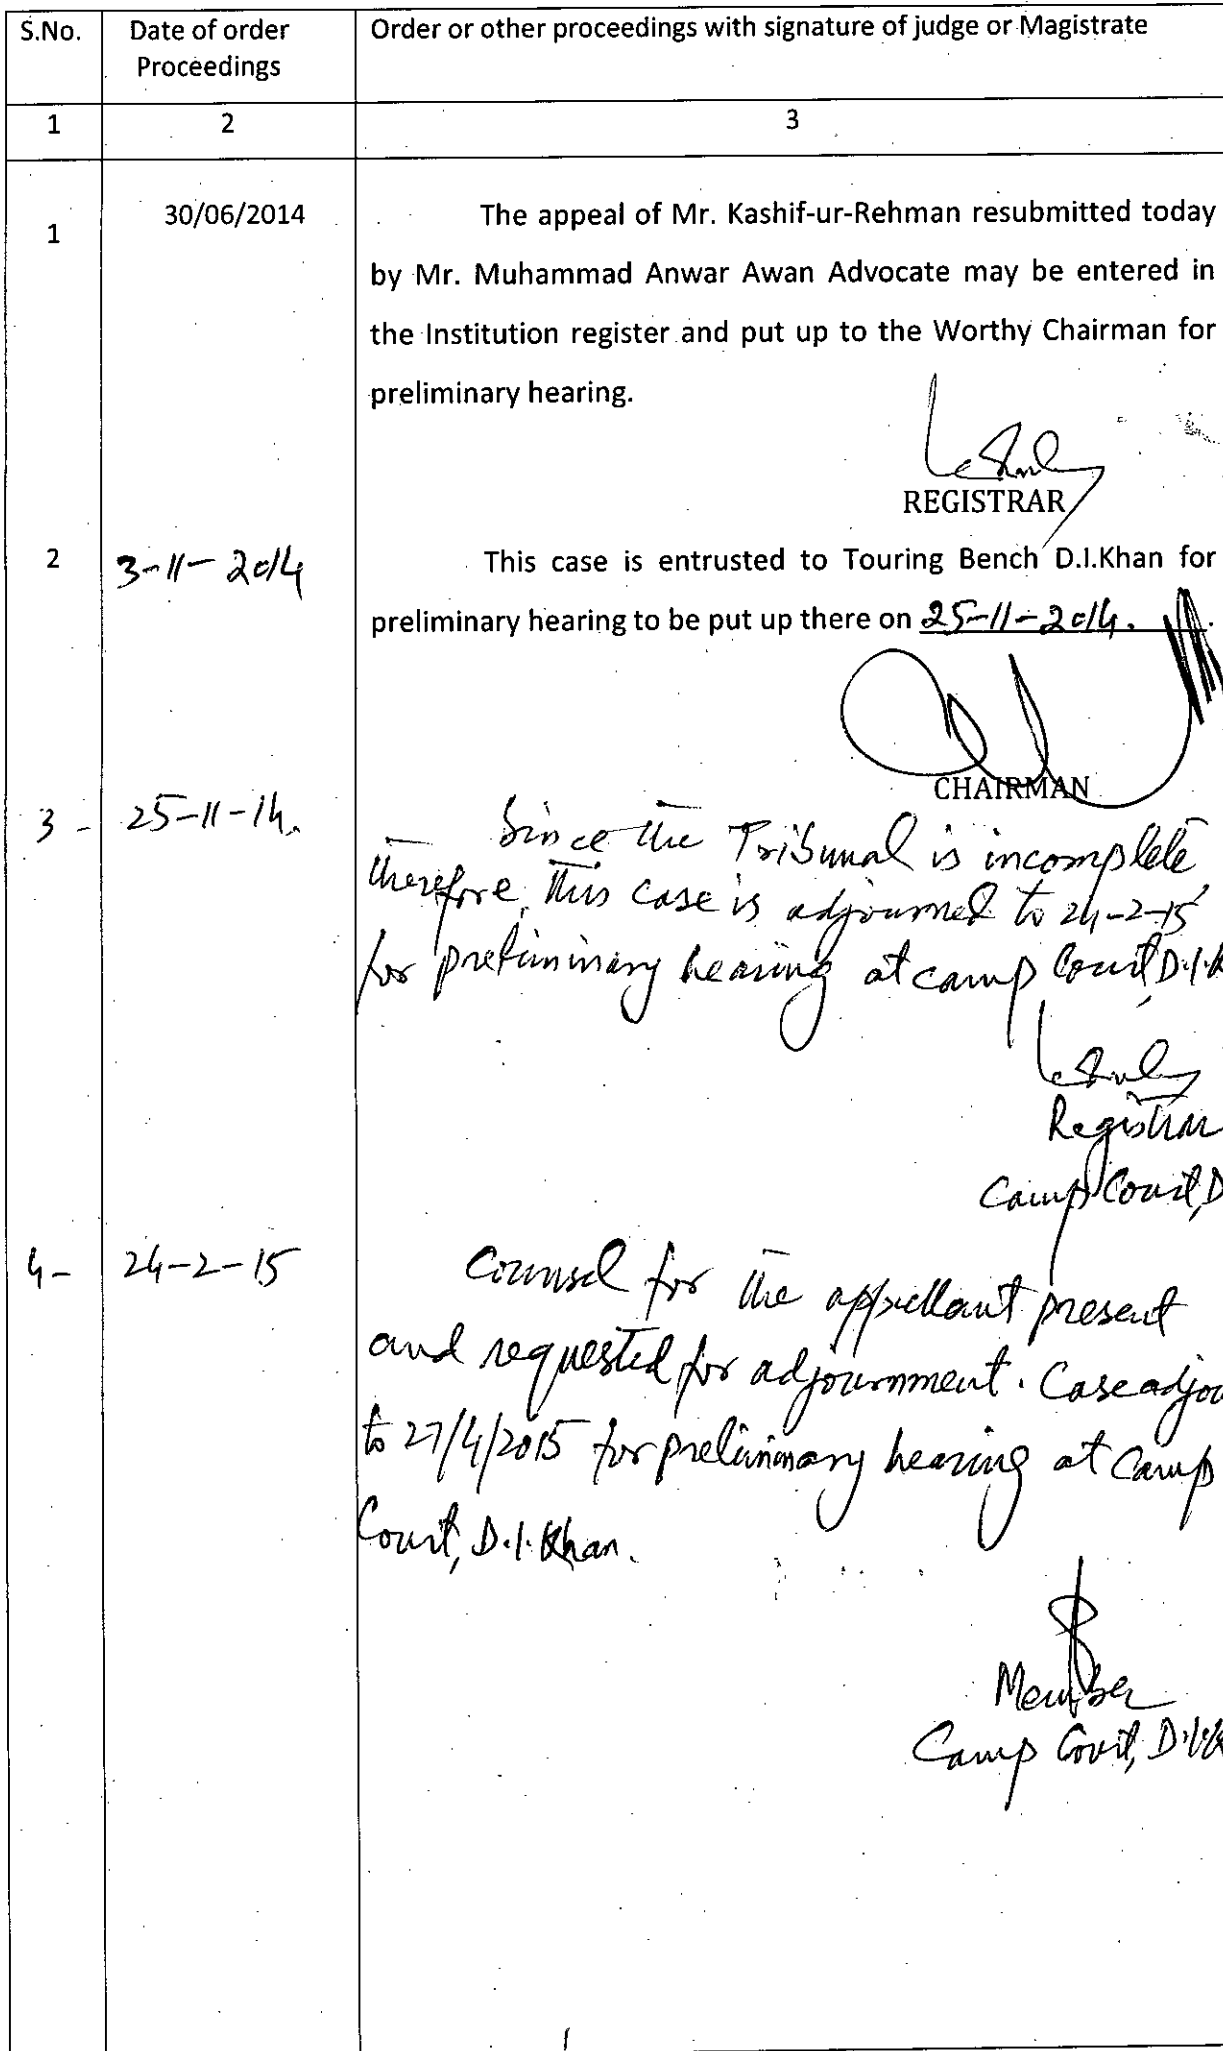 S.No. Date of order Order or other proceedings with signature of judge or Magistrate
Proceedings
1 2 3
1 30/06/2014 The appeal of Mr. Kashif-ur-Rehman resubmitted today
by Mr. Muhammad Anwar Awan Advocate may be entered in
the Institution register and put up to the Worthy Chairman for
preliminary hearing.
REGISTRAR
2 3-11-2014 This case is entrusted to Touring Bench D.I.Khan for
preliminary hearing to be put up there on 25-11-2014.
CHAIRMAN
3 - 25-11-14. Since the Tribunal is incomplete
therefore, this case is adjourned to 24-2-15
for preliminary hearing at camp Court, D.I.K
Registrar
Camp Court, D
4- 24-2-15 Counsel for the appellant present
and requested for adjournment. Case adjou
to 27/4/2015 for preliminary hearing at Camp
Court, D.I.Khan.
Member
Camp Court, D.I.K